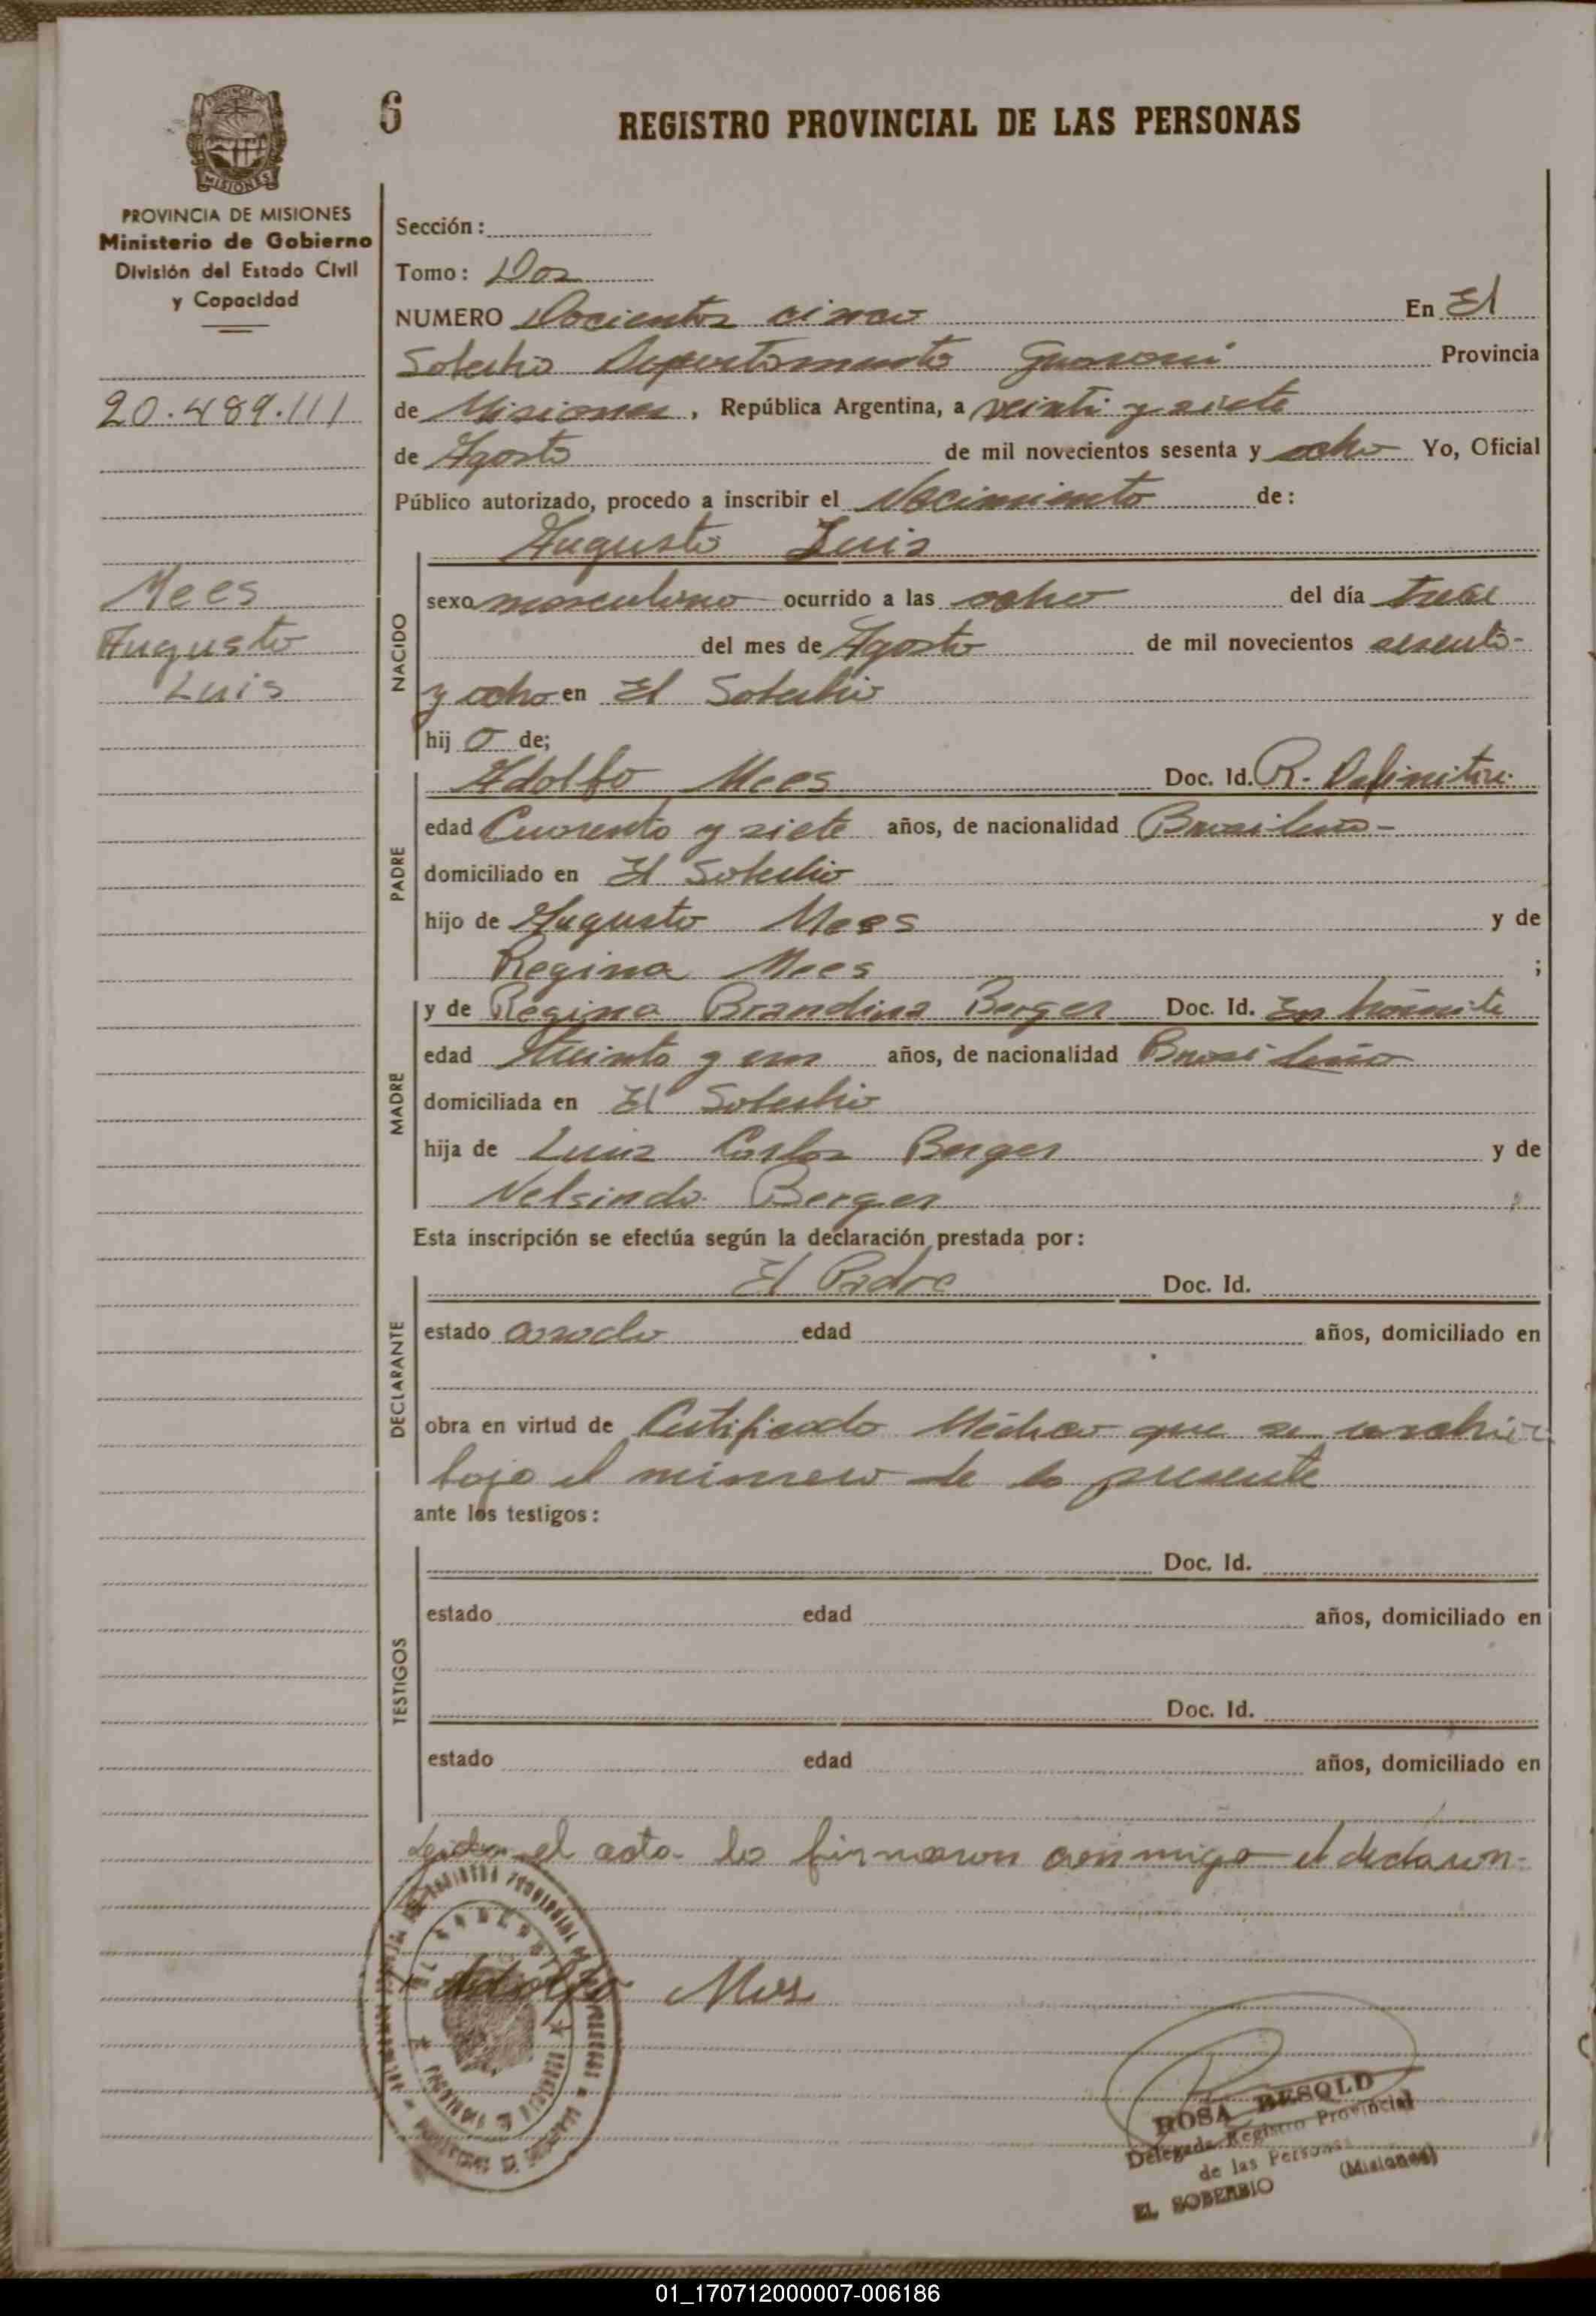 6
REGISTRO PROVINCIAL DE LAS PERSONAS
MISIONES
PROVINCIA DE MISIONES
Ministerio de Gobierno
División del Estado Civil
y Capacidad
20.489.111
Mees
Augusto
Luis
Sección:
Tomo: Dos
NUMERO Docientos cinco En El
Soberbio Departamento Guarani Provincia
de Misiones, República Argentina, a veinti y siete
de Agosto de mil novecientos sesenta y ocho Yo, Oficial
Público autorizado, procedo a inscribir el Nacimiento de:
NACIDO
Augusto Luis
sexo masculino ocurrido a las ocho del día trece
del mes de Agosto de mil novecientos sesenta-
y ocho en El Soberbio
hij o de;
PADRE
Adolfo Mees Doc. Id. R. Definitivo
edad Cuarenta y siete años, de nacionalidad Brasileño-
domiciliado en El Soberbio
hijo de Augusto Mees y de
Regina Mees ;
MADRE
y de Regina Brandina Berger Doc. Id. En trámite
edad treinta y un años, de nacionalidad Brasileño
domiciliada en El Soberbio
hija de Luis Carlos Berger y de
Nelsindo Berger
Esta inscripción se efectúa según la declaración prestada por:
DECLARANTE
El Padre Doc. Id.
estado casado edad años, domiciliado en
obra en virtud de Certificado Médico que se archiva
bajo el número de la presente
ante los testigos:
TESTIGOS
Doc. Id.
estado edad años, domiciliado en
Doc. Id.
estado edad años, domiciliado en
Leida el acta la firmaron conmigo el declaran-
Adolfo Mees
ROSA BESOLD
Delegada Registro Provincial
de las Personas
EL SOBERBIO (Misiones)
01_170712000007-006186